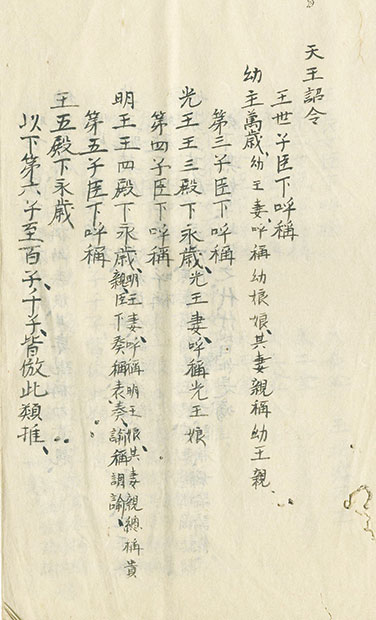 天王詔令
王世子臣下呼稱
幼主萬歲、幼王妻、呼稱幼娘娘、其妻親稱幼王親
第三子臣下呼稱
光王王三殿下永歲、光王妻呼稱光王娘
第四子臣下呼稱
明王王四殿下永歲、明王妻呼稱明王娘、其妻親總稱貴
親、臣下奏稱表奏、諭稱調諭、
第五子臣下呼稱
王五殿下永歲
以下第六子至百子、千子、皆倣此類推、